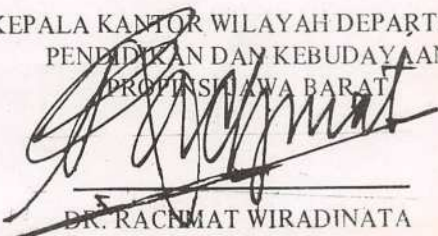 KEPALA KANTOR WILAYAH DEPART
PENDIDIKAN DAN KEBUDAYAAN
PROPINSI JAWA BARAT
DR. RACHMAT WIRADINATA